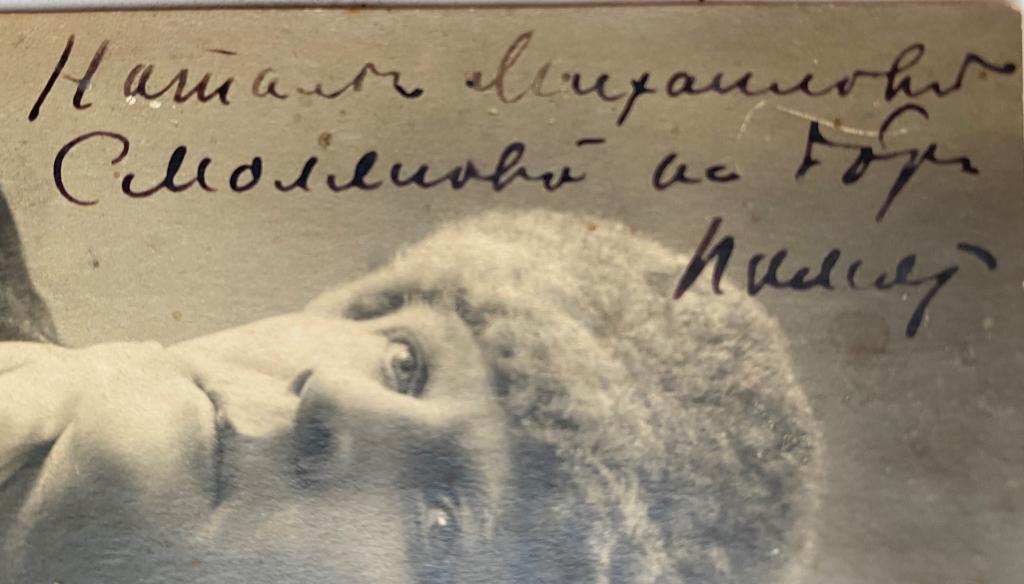 Наталье Михайловне
Смоляновой на добр
память